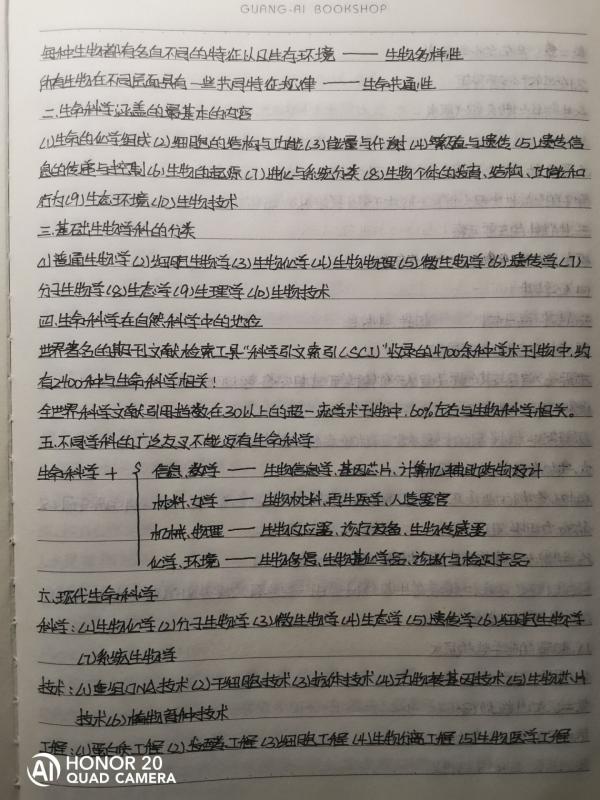 GUANG-AI BOOKSHOP
每种生物都有各自不同的特征以及生存环境 —— 生物多样性
所有生物在不同层面具有一些共同特征规律 —— 生命共通性
二.生命科学涵盖的最基本的内容
(1)生命的化学组成(2)细胞的结构与功能(3)能量与代谢(4)繁殖与遗传(5)遗传信
息的传递与控制(6)生物的起源(7)进化与系统分类(8)生物个体的发育、结构、功能和
行为(9)生态环境(10)生物技术
三.基础生物学科的分类
(1)普通生物学(2)细胞生物学(3)生物化学(4)生物物理(5)微生物学(6)遗传学(7)
分子生物学(8)生态学(9)生理学(10)生物技术
四.生命科学在自然科学中的地位
世界著名的期刊文献检索工具"科学引文索引(SCI)"收录的4700余种学术刊物中,约
有2400种与生命科学相关!
全世界科学文献引用指数在30以上的超一流学术刊物中,60%左右与生物科学相关。
五.不同学科的广泛交叉不能没有生命科学
生命科学 + { 信息、数学 —— 生物信息学、基因芯片、计算机辅助药物设计
材料、力学 —— 生物材料、再生医学、人造器官
机械、物理 —— 生物反应器、诊疗设备、生物传感器
化学、环境 —— 生物修复、生物基化学品、诊断与检测产品
六.现代生命科学
科学:(1)生物化学(2)分子生物学(3)微生物学(4)生态学(5)遗传学(6)细胞生物学
(7)系统生物学
技术:(1)重组DNA技术(2)干细胞技术(3)抗体技术(4)动物转基因技术(5)生物芯片
技术(6)植物育种技术
工程:(1)蛋白质工程(2)发酵工程(3)细胞工程(4)生物制药工程(5)生物医学工程
AI HONOR 20
QUAD CAMERA